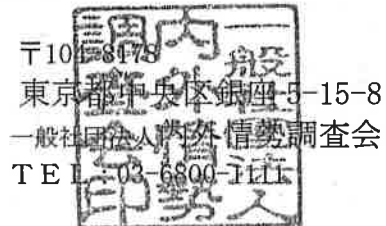 〒104-8178
東京都中央区銀座5-15-8
一般社団法人内外情勢調査会
TEL:03-6800-1111